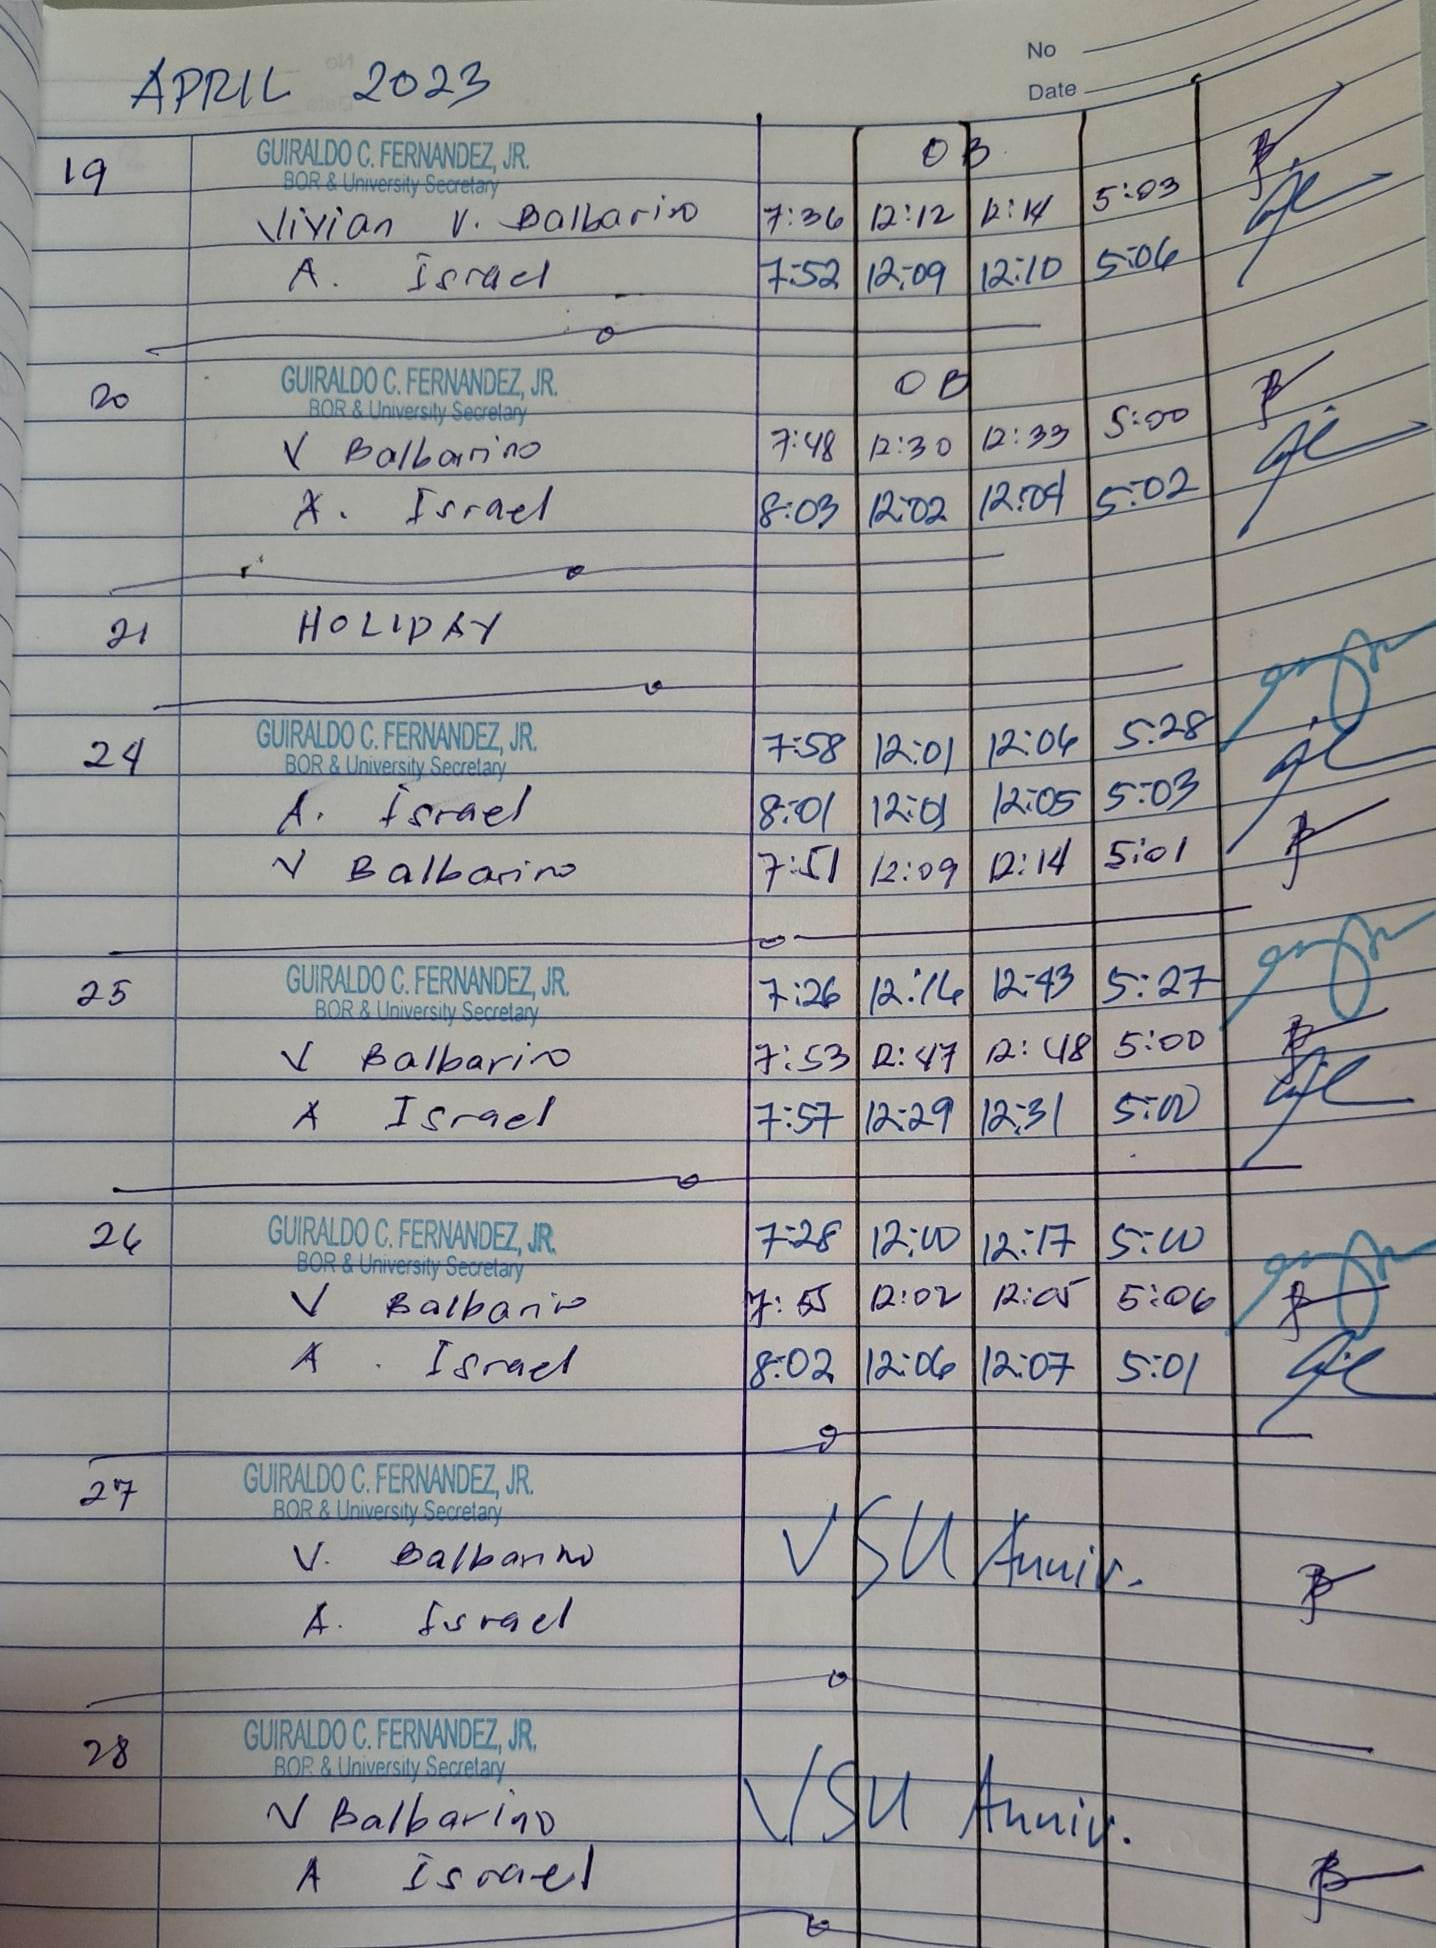 No
Date
APRIL 2023
19 GUIRALDO C. FERNANDEZ, JR. OB
BOR & University Secretary
Vivian V. Balbarino 7:36 12:12 12:14 5:03
A. Israel 7:52 12:09 12:10 5:06
20 GUIRALDO C. FERNANDEZ, JR. OB
BOR & University Secretary
V Balbarino 7:48 12:30 12:33 5:00
A. Israel 8:03 12:02 12:04 5:02
21 HOLIDAY
24 GUIRALDO C. FERNANDEZ, JR. 7:58 12:01 12:06 5:28
BOR & University Secretary
A. Israel 8:01 12:01 12:05 5:03
V Balbarino 7:51 12:09 12:14 5:01
25 GUIRALDO C. FERNANDEZ, JR. 7:26 12:16 12:43 5:27
BOR & University Secretary
V Balbarino 7:53 12:47 12:48 5:00
A Israel 7:57 12:29 12:31 5:00
26 GUIRALDO C. FERNANDEZ, JR. 7:28 12:00 12:17 5:00
BOR & University Secretary
V Balbarino 7:55 12:02 12:05 5:06
A. Israel 8:02 12:06 12:07 5:01
27 GUIRALDO C. FERNANDEZ, JR.
BOR & University Secretary
V. Balbarino VSU Anniv.
A. Israel
28 GUIRALDO C. FERNANDEZ, JR.
BOR & University Secretary
V Balbarino VSU Anniv.
A Israel